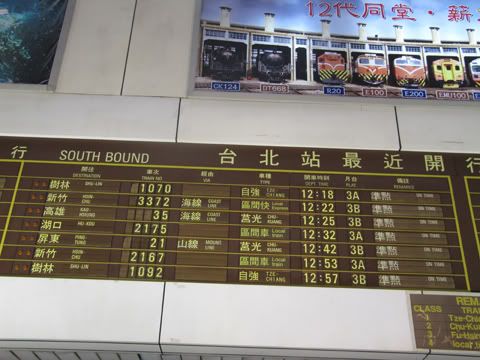 12代同堂·薪
CK124 DT668 R20 E100 E200 EMU100
行 SOUTH BOUND 台北站最近開 行
開往 DESTINATION 車次 TRAIN NO. 經由 VIA 車種 TYPE 開車時刻 DEPT. TIME 月台 PLAT. 備註 REMARKS
樹林 SHU-LIN 1070 自強 TZE-CHIANG 12:18 3A 準點 ON TIME
新竹 HSIN-CHU 3372 海線 COAST LINE 區間快 Local Express 12:22 3B 準點 ON TIME
高雄 KAO-HSIUNG 35 海線 COAST LINE 莒光 CHU-KUANG 12:28 3B 準點 ON TIME
湖口 HU-KOU 2175 區間車 Local train 12:32 3A 準點 ON TIME
屏東 PING-TUNG 21 山線 MOUNT LINE 莒光 CHU-KUANG 12:42 3B 準點 ON TIME
新竹 HSIN-CHU 2167 區間車 Local train 12:53 3A 準點 ON TIME
樹林 SHU-LIN 1092 自強 TZE-CHIANG 12:57 3B 準點 ON TIME
REMA
CLASS TRA
1 Tze-Chi
2 Chu-Kua
3 Fu-Hsi
4 local tr